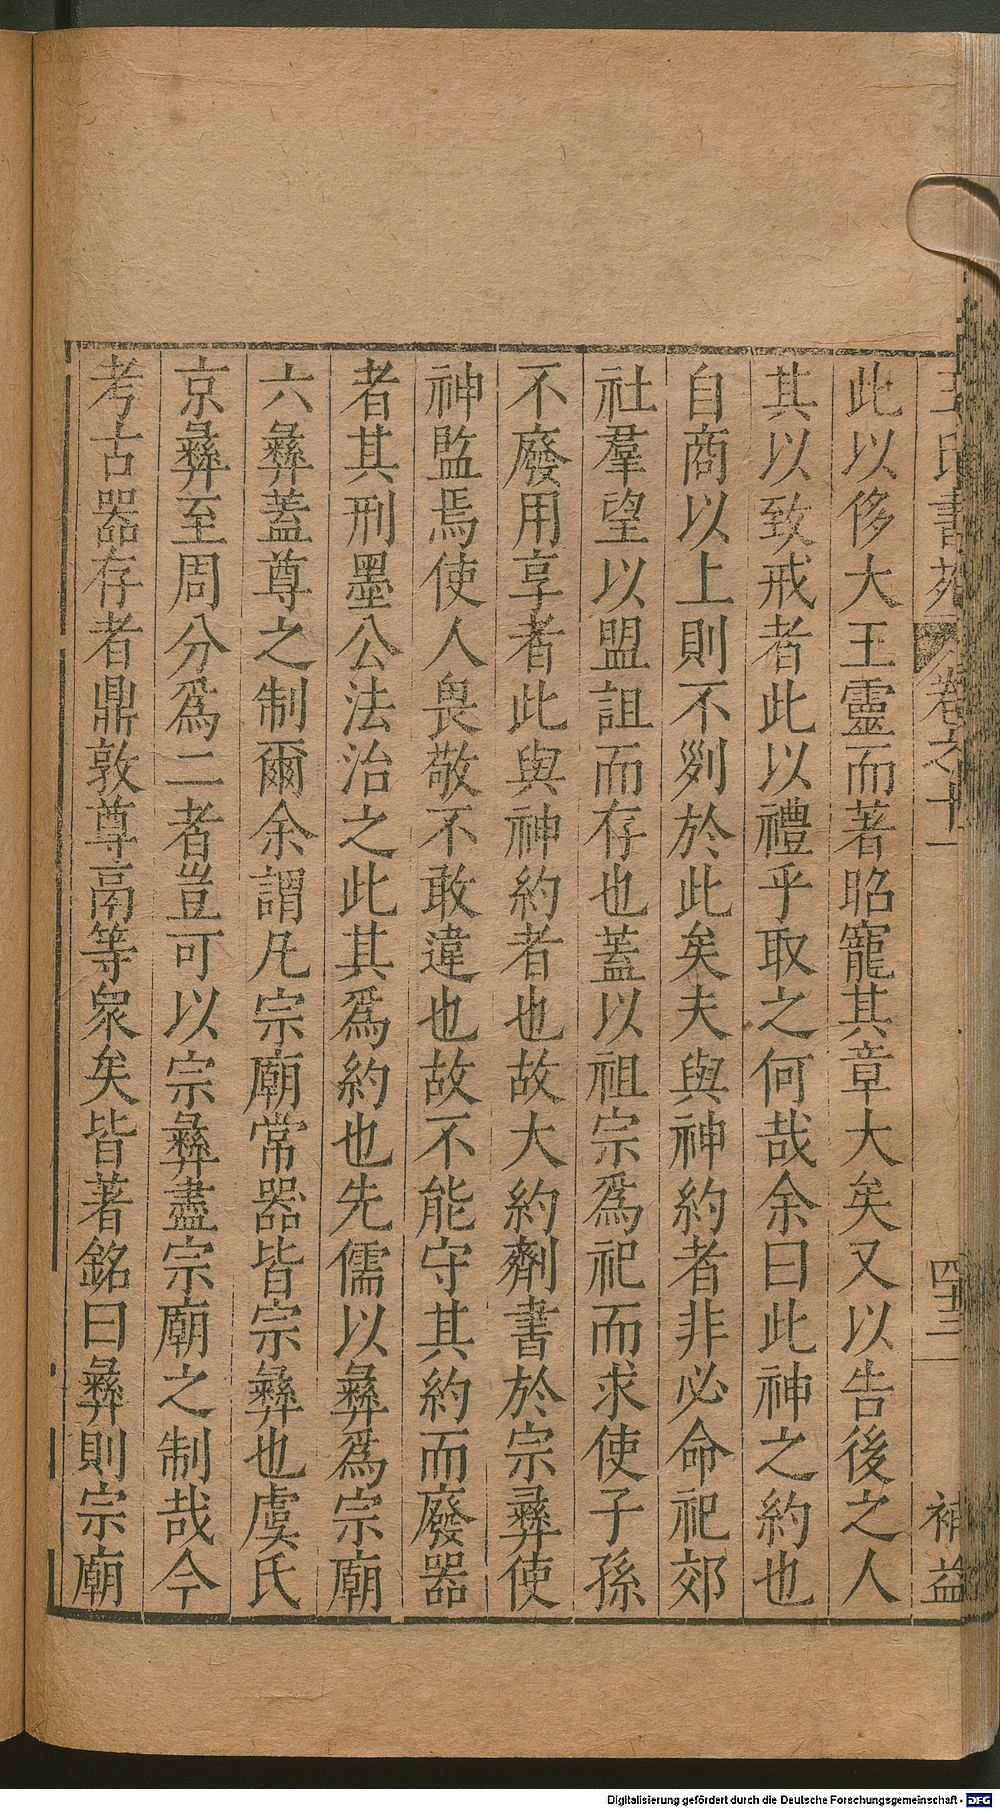 王氏書苑 卷之十一 四十三 補益
此以侈大王靈而著昭寵其章大矣又以告後之人
其以致戒者此以禮乎取之何哉余曰此神之約也
自商以上則不剡於此矣夫與神約者非必命祀郊
社羣望以盟詛而存也蓋以祖宗爲祀而求使子孫
不廢用享者此與神約者也故大約劑書於宗彝使
神監焉使人畏敬不敢違也故不能守其約而廢器
者其刑墨公法治之此其爲約也先儒以彝爲宗廟
六彝蓋尊之制爾余謂凡宗廟常器皆宗彝也虞氏
京彝至周分爲二者豈可以宗彝盡宗廟之制哉今
考古器存者鼎敦尊鬲等衆矣皆著銘曰彝則宗廟
Digitalisierung gefördert durch die Deutsche Forschungsgemeinschaft - DFG